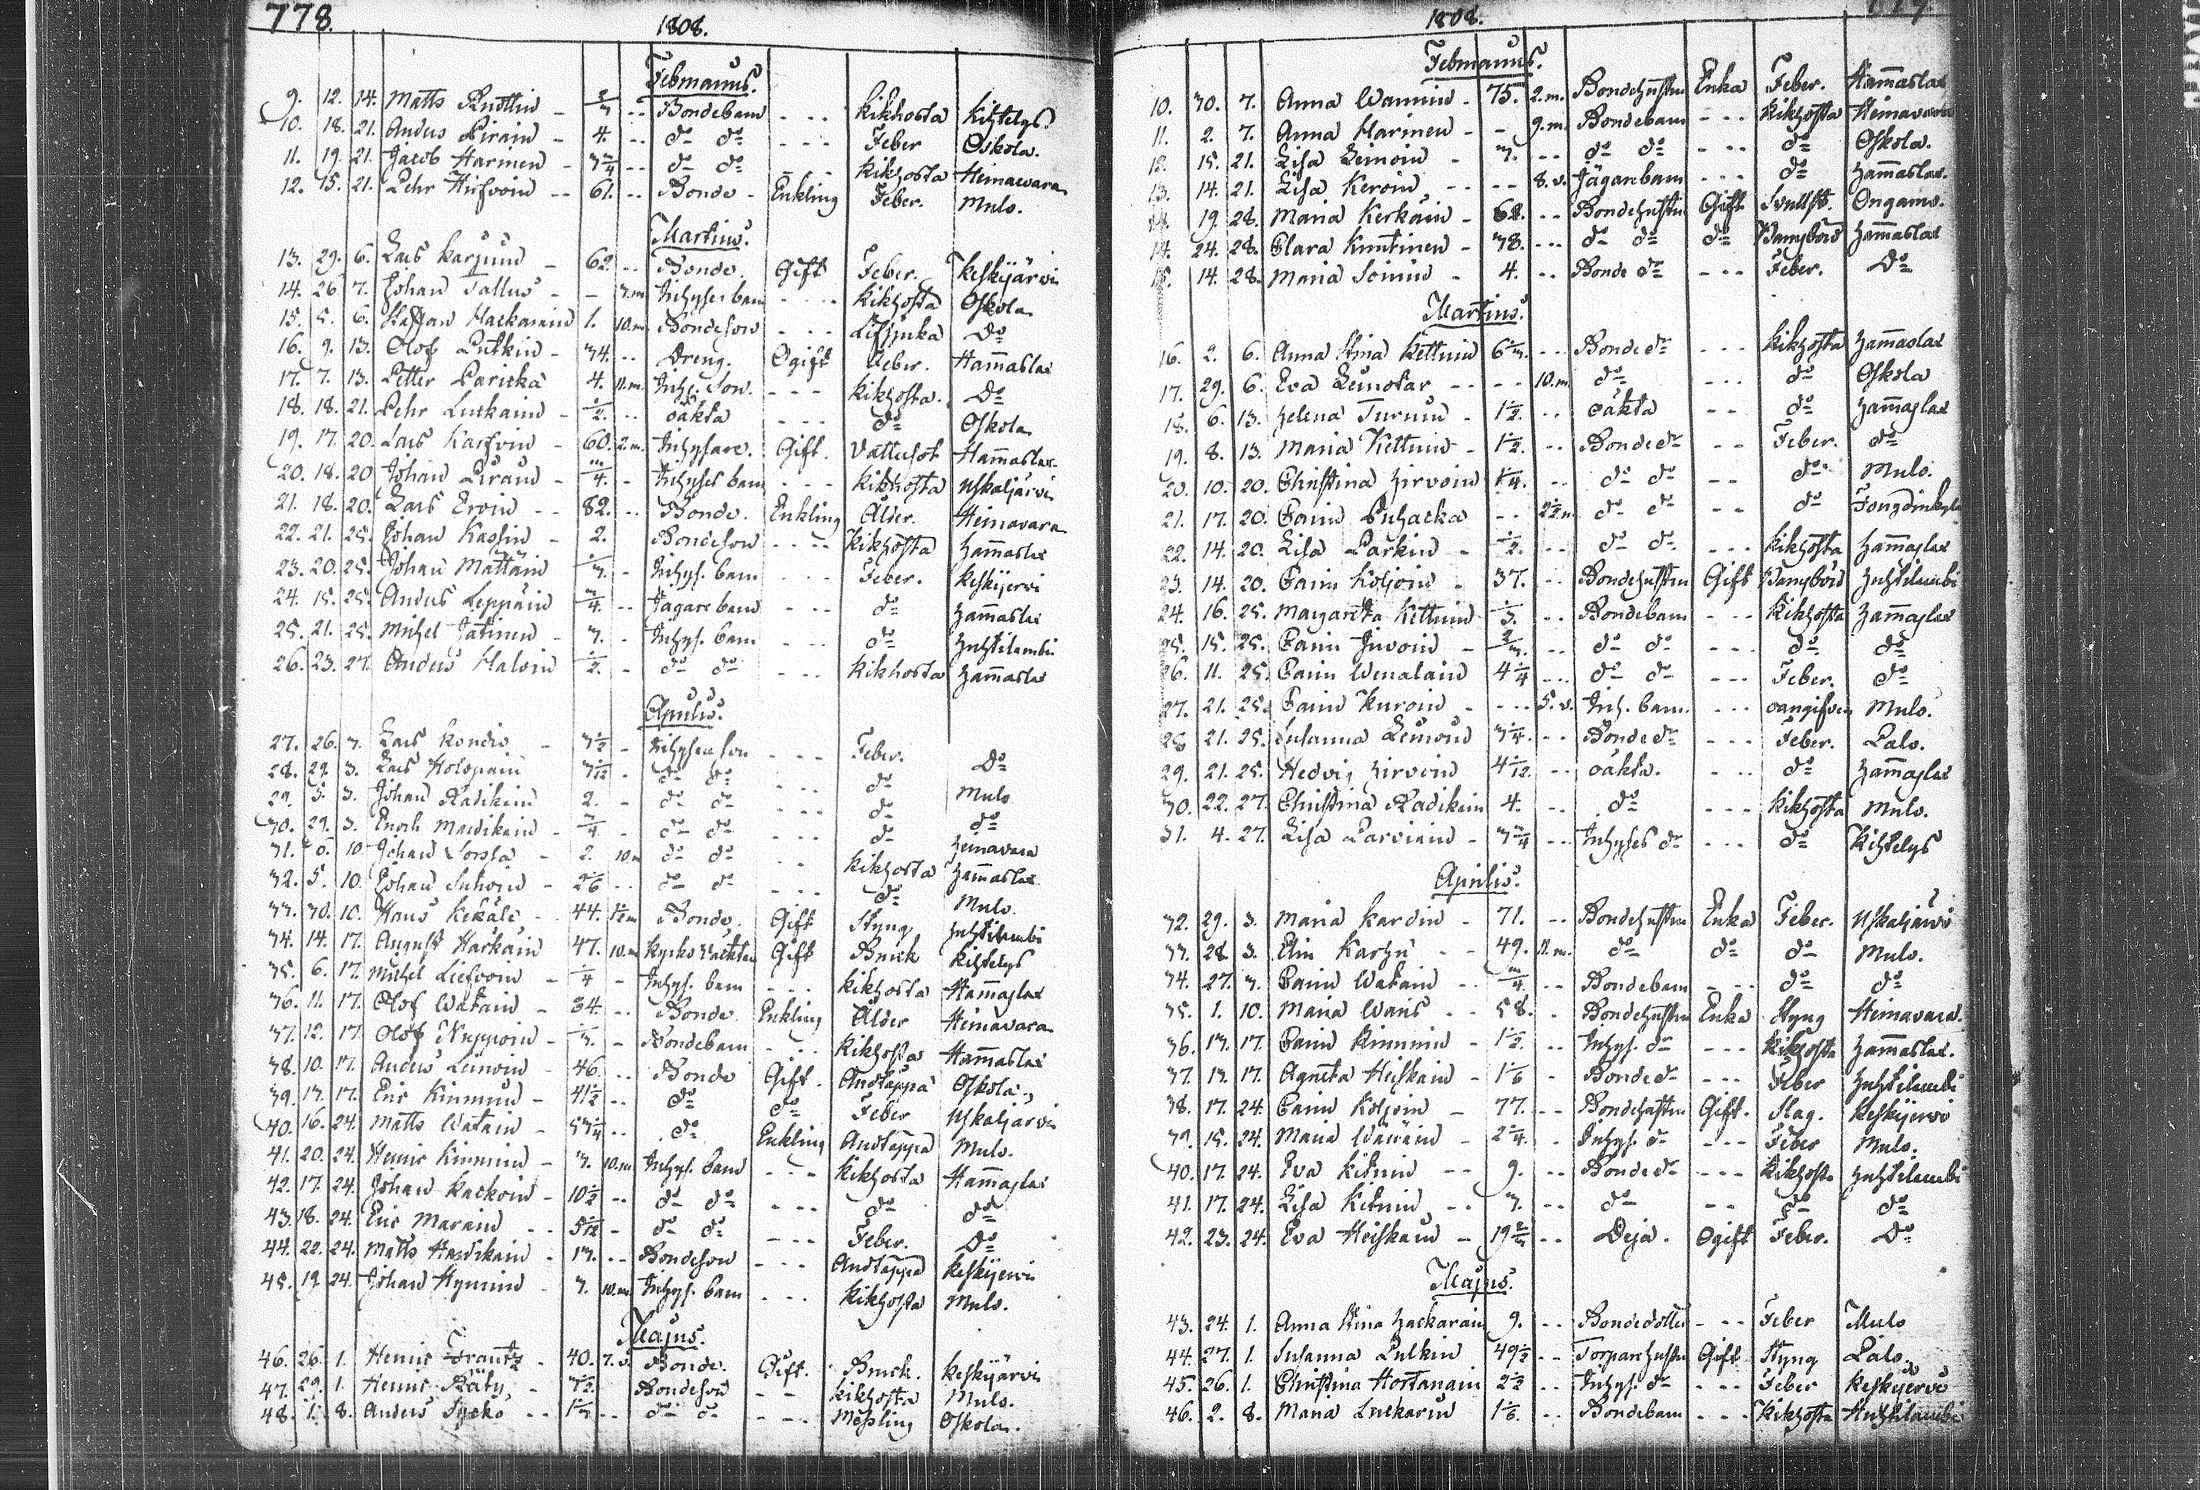 778.
1808.
Februarius.
9. 12. 14. Matts - - Bondebarn - - - Kikhosta Kihtelys.
10. 18. 21. Anders Pirain - 4. - - do do - - - Feber Oskola.
11. 19. 21. Jacob Harinen - 3/4 - - do do - - - Kikhosta Heinavara
12. 15. 21. Pehr Hirfvoin - - 61. - - Bonde - Enkling Feber. Mulo.
Martius.
13. 29. 6. Lars Karjuin - 62. - - Bonde. Gift Feber. Keskijärvi
14. 26 7. Johan Tallus - - 3.m Inhyses barn - - - Kikhosta Oskola
15. 5. 6. Staffan Hackarain 1. 10.m Bondeson - - - Do
16. 9. 13. Olof Putkin - 34. - - Dreng. Ogift Feber. Hammaslax
17. 7. 13. Petter Paricka 4. 11.m. Inhys. Son. - - - Kikhosta. Do
18. 18. 21. Pehr Luckain - 1/2. - - oäkta - - - do Oskola
19. 17. 20. Lars Karfvin - 60. 2.m. Inhysare. Gift. Vattusot Hammaslax.
20. 18. 20 Johan Pirain - 3/4. - Inhyses barn - - - Kikhosta Uskaljärvi
21. 18. 20. Lars Ervin - - 82. - - Bonde. Enkling Ålder. Heinavara
22. 21. 25. Johan Kassin - 2. Bondeson - - - Kikhosta Hammaslax
23. 20. 25. Johan Mattain - Inhys. barn - - - Feber. Keskijervi
24. 15. 25. Anders Leppäin 3/4. - - Jägare barn - - - do Hammaslax
25. 21. 25. Michel Jatinen - 3. - Inhys. barn - - - do Huhtilambi
26. 23. 27. Anders Haloin 1/2. - do do - - - Kikhosta Hammaslax
Aprilis.
27. 26. 3. Lars - 3 1/2 - Inhyses son - - - Feber. Do
28. 29. 3. Lars Holopain 3 1/12 - do do - - - do Mulo
29. 5. 3. Johan Radikain 2. - do do - - - do do
30. 29. 3. Enoch - 3/4 - do do - - - do Heinavara
31. 5. 10. Johan Sorsa - 2. 10.m do do - - Kikhosta Hammaslax
32. 5. 10. Johan Suhoin - 2 1/6 - - do do - - - do Mulo
33. 30. 10. Hans Kekäle - 44. Bonde. Gift Styng Huhtilambi
34. 14. 17. August Harkain 47. 10.m Kyrko Wäcktare Gift Brick Kihtelys
35. 6. 17. Michel - 1/4 - Inhys. barn - - - Kikhosta Hammaslax
36. 11. 17. Olof Watain - 84. - - Bonde. Enkling Ålder Heinavara
37. 12. 17. Olof Nyppoin - - Bondebarn - - - Kikhosta Hammaslax
38. 10. 17. Anders Leinoin 46. - - Bonde Gift. Andtäppa Oskola
39. 13. 17. Eric Kinnuin - 41 1/2 - - do do Feber Uskaljärvi
40. 16. 24. Matts Watain - 53 1/4 - - do Enkling Andtäppa Mulo.
41. 20. 24. Henric Kinnuin - 3. 10.m Inhys. barn - - - Kikhosta Hammaslax
42. 17. 24. Johan Kackoin - 10 1/2 - - do do - - - do do
43. 18. 24. Eric Marain - - 5 1/12 - do do - - - Feber. Do
44. 22. 24. Matts - 13. - - Bondeson - - - Andtäppa Keskijervi
45. 19. 24. Johan Hyniin - 3. 10.m Inhys. barn - - - Kikhosta Mulo.
Majus.
46. 26. 1. Henric Frantz - 40. 7.v. Bonde. Gift. Brick. Keskijärvi
47. 29. 1. Henric Räty, - 3 1/2 Bondeson - - Kikhosta Mulo.
48. 1. 8. Anders - - - - do do - - - Mässling Oskola.
1808.
Februarius.
10. 30. 7. Anna Wannin - 75. 2.m. Bondehustru Enka Feber. Hammaslax
11. 2. 7. Anna Harinen - - 9.m. Bondebarn - - - Kikhosta Heinavara
12. 15. 21. Lisa Leinoin - 3. - - - do do - - - do Oskola.
13. 14. 21. Lisa Keroin, - - - - 8.v. Jägarebarn - - - do Hammaslax.
19. 28. Maria Kerkäin - 68. - - Bondehustru Gift Ongamo.
14. 24. 28. Clara Knutinen - 78. - - - do do do Hammaslax
15. 14. 28. Maria Soinin - 4. - - Bonde do - - - Feber. Do
Martius.
16. 2. 6. Anna Stina Kettuin - - - Bonde do - - - Kikhosta Hammaslax
17. 29. 6. Eva Leinotar - - - - 10.m. do - - - do Oskola
18. 6. 13. Helena Turuin - 1 1/2. - - oäkta - - do Hammaslax
19. 8. 13. Maria Kettuin - 1 1/2. - - Bonde do - - Feber. do
20. 10. 20. Christina Hirvoin 1 1/4. - - do do - - do Mulo.
21. 17. 20. Carin Puhacka - - 2 1/2.m do do - - do
22. 14. 20. Lisa Parkin - 1/2. - - do do - - - Kikhosta Hammaslax
23. 14. 20. Carin Koljoin - 37. - - Bondehustru Gift Huhtilambi
24. 16. 25. Margareta Kettuin 1/3. - - Bondebarn - - - Kikhosta Hammaslax
25. 15. 25. Carin Juvoin - 2/3 - - do do - - - do do
26. 11. 25. Carin Wenalain 4 1/4 - - do do - - - Feber. do
27. 21. 25. Carin Kuroin - - - - 5.v. Inh. barn. - - - oangifven Mulo.
28 21. 25. Susanna 3 1/4. - - Bonde do - - - Feber. Palo.
29. 21. 25. Hedvig Hirvoin 4 1/12. - - oäkta. - - - do Hammaslax
30. 22. 27. Christina Radikain 4. - - do - - - Kikhosta Mulo.
31. 4. 27. Lisa Parviain - 3 3/4 - - Inhyses do - - - do Kihtelys
Aprilis.
32. 29. 3. Maria Kardin - 71. - - Bondehustru Enka Feber. Uskaljärvi
33. 28 3. Elin Karhu - - 49. 11.m. do do do Mulo.
34. 27. 3. Carin Watain - - 3/4. - - Bondebarn - - - do do
35. 1. 10. Maria Wans - - 58. - Bondehustru Enka Styng Heinavara.
36. 13. 17. Carin Kinnuin - 1 1/2. - - Inhys. do - - - Kikhosta Hammaslax.
37. 13. 17. Agneta Heiskain - 1 1/6 - Bonde do - - - Feber Huhtilambi
38. 17. 24. Carin Koljoin - 77. - - Bondehustru Gift. Slag. Keskijervi
39. 15. 24. Maria Wänäin - - - Inhys. do - - - Feber Mulo.
40. 17. 24. Eva Kitnin - - 9. - - Bonde do - - - Kikhosta Huhtilambi
41. 17. 24. Lisa Kitnin, - - 3. - - do - - do do
42. 23. 24. Eva Heiskain - 19 2/3 - - Deja. Ogift Feber. Do
Majus.
43. 24. 1. Anna Stina Hackarain 9. - - Bondedotter - - - Feber Mulo
44. 27. 1. Susanna Pulkin 49 1/2 - - Torparehustru Gift Styng Palo.
45. 26. 1. Christina Hortanain 2 1/2 - - Inhys. do - - - Feber Keskijervi
46. 2. 8. Maria Luckarin 1 1/6. - - Bondebarn - - - Kikhosta Huhtilambi